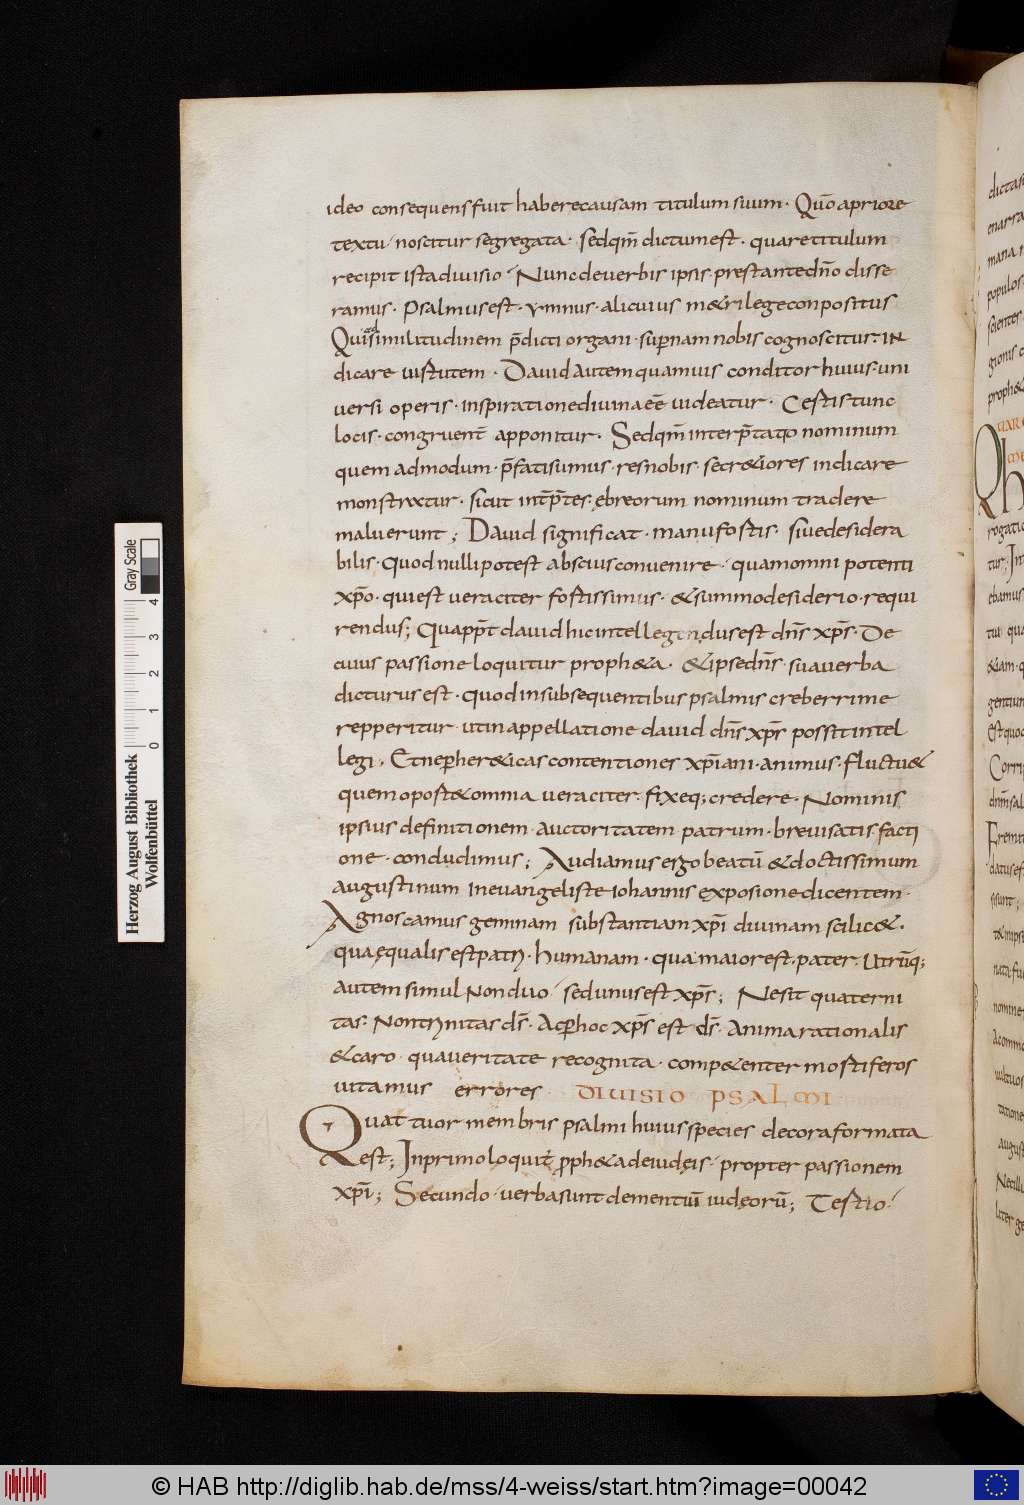 ideo consequens fuit habere causam titulum suum · Quō a priore
textu · noscitur segregata · sed qm̄ dictum est · quare titulum
recipit ista diuisio · Nunc de uerbis ipsis prestante dn̄o disse
ramus · Psalmus est · ymnus · alicuius m&ri lege conpositus
Qui ad similitudinem p̄dicti organi · supnam nobis cognoscitur · IN
dicare uirtutem · Dauid autem quamuis conditor huius uni
uersi operis · inspiratione diuina eē uideatur · Certis tunc
locis · congruent̄ apponitur · Sed qm̄ interp̄tatio nominum
quem admodum · p̄fati sumus · res nobis · secr&iores indicare
monstratur · sicut int̄p̄tes ębreorum nominum tradere
maluerunt ; Dauid significat · manu fortis · siue desidera
bilis · Quod nulli potest abscius conuenire · quam omni potenti
xp̄o · qui est ueraciter fortissimus · & summo desiderio · requi
rendus ; Quapp̄t dauid hic intellegendus est dn̄s xp̄s · De
cuius passione loquitur proph&a · & ipse dn̄s · sua uerba
dicturus est · Quod in subsequentibus psalmis creberrime
repperitur ut in appellatione dauid dn̄s xp̄s possit intel
legi · Et ne per her&icas contentiones xp̄iani · animus · fluctu&
quem oport& omnia ueraciter · fixeq; credere · Nominis
ipsius definitionem · auctoritatem patrum · breui satis facti
one · concludimus ; Audiamus ergo beatū & doctissimum
augustinum in euangeliste iohannis exposione dicentem ·
Agnoscamus geminam substantiam xp̄i diuinam scilic& ·
qua ęqualis est patri · humanam · qua maior est · pater · Utrūq;
autem simul Non duo · sed unus est xp̄s ; Ne sit quaterni
tas · Non trinitas ds̄ · Ac per hoc xp̄s est ds̄ · Anima rationalis
& caro · qua ueritate recognita · comp&enter mortiferos
uitamus errores · DIUISIO PSALMI
Quattuor membris psalmi huius species decora formata
est ; In primo loquit̄ pph&a de iudęis · propter passionem
xp̄i ; Secundo · uerba sunt dementiū iudęorū ; Tertio ·
Herzog August Bibliothek
Wolfenbüttel
Gray Scale
0 1 2 3 4
© HAB http://diglib.hab.de/mss/4-weiss/start.htm?image=00042